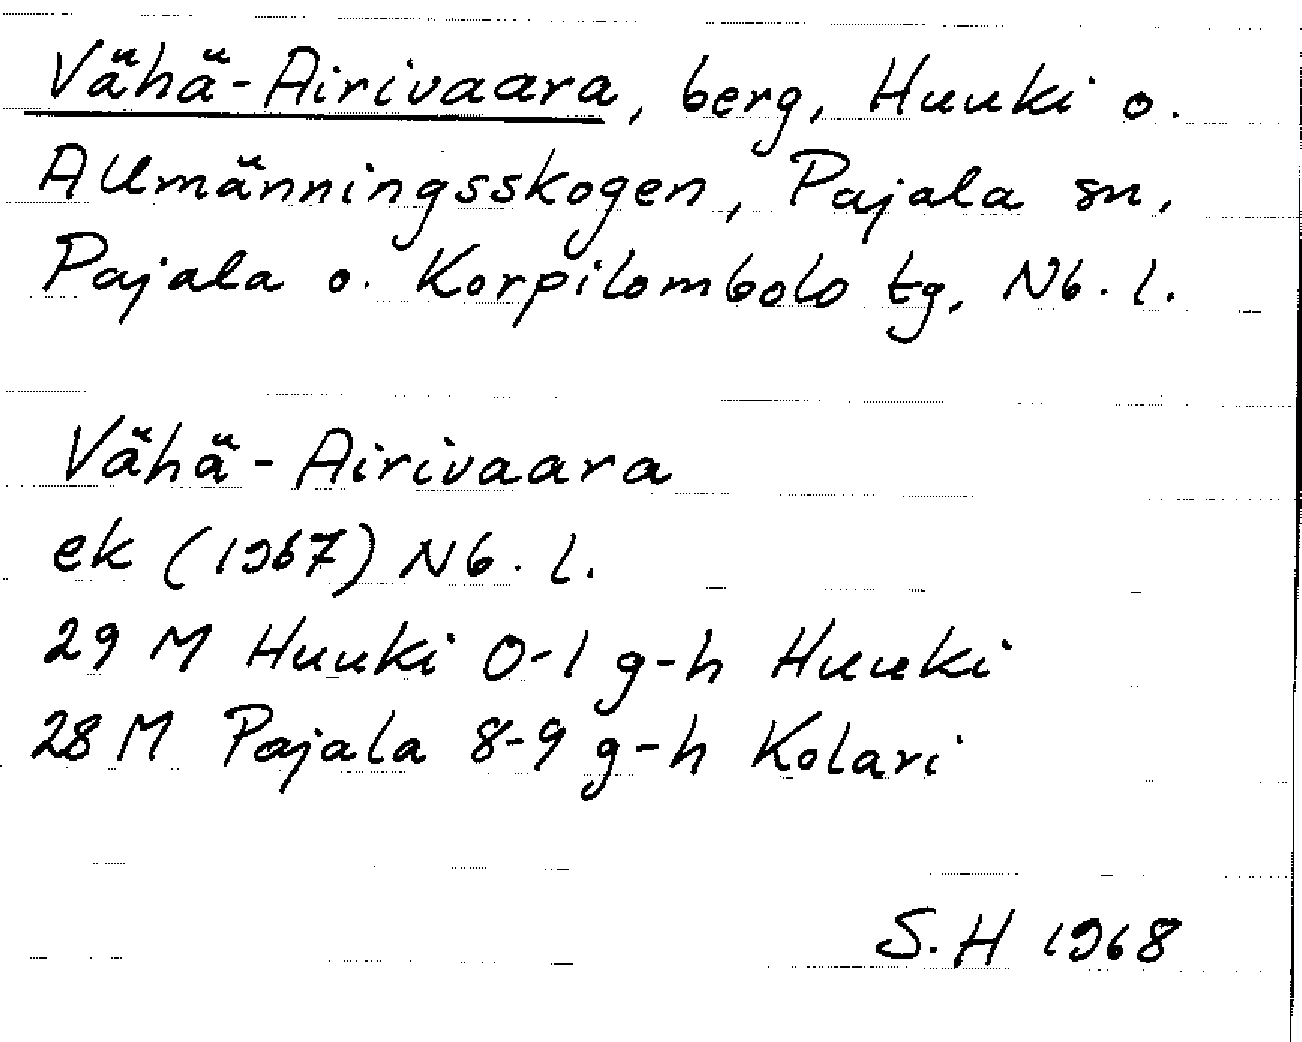 Vähä-Airivaara, berg, Huuki o.
Allmänningsskogen, Pajala sn,
Pajala o. Korpilombolo tg, Nb. l.
Vähä-Airivaara
ek (1967) Nb. l.
29 M Huuki 0-1 g-h Huuki
28 M Pajala 8-9 g-h Kolari
S. H 1968